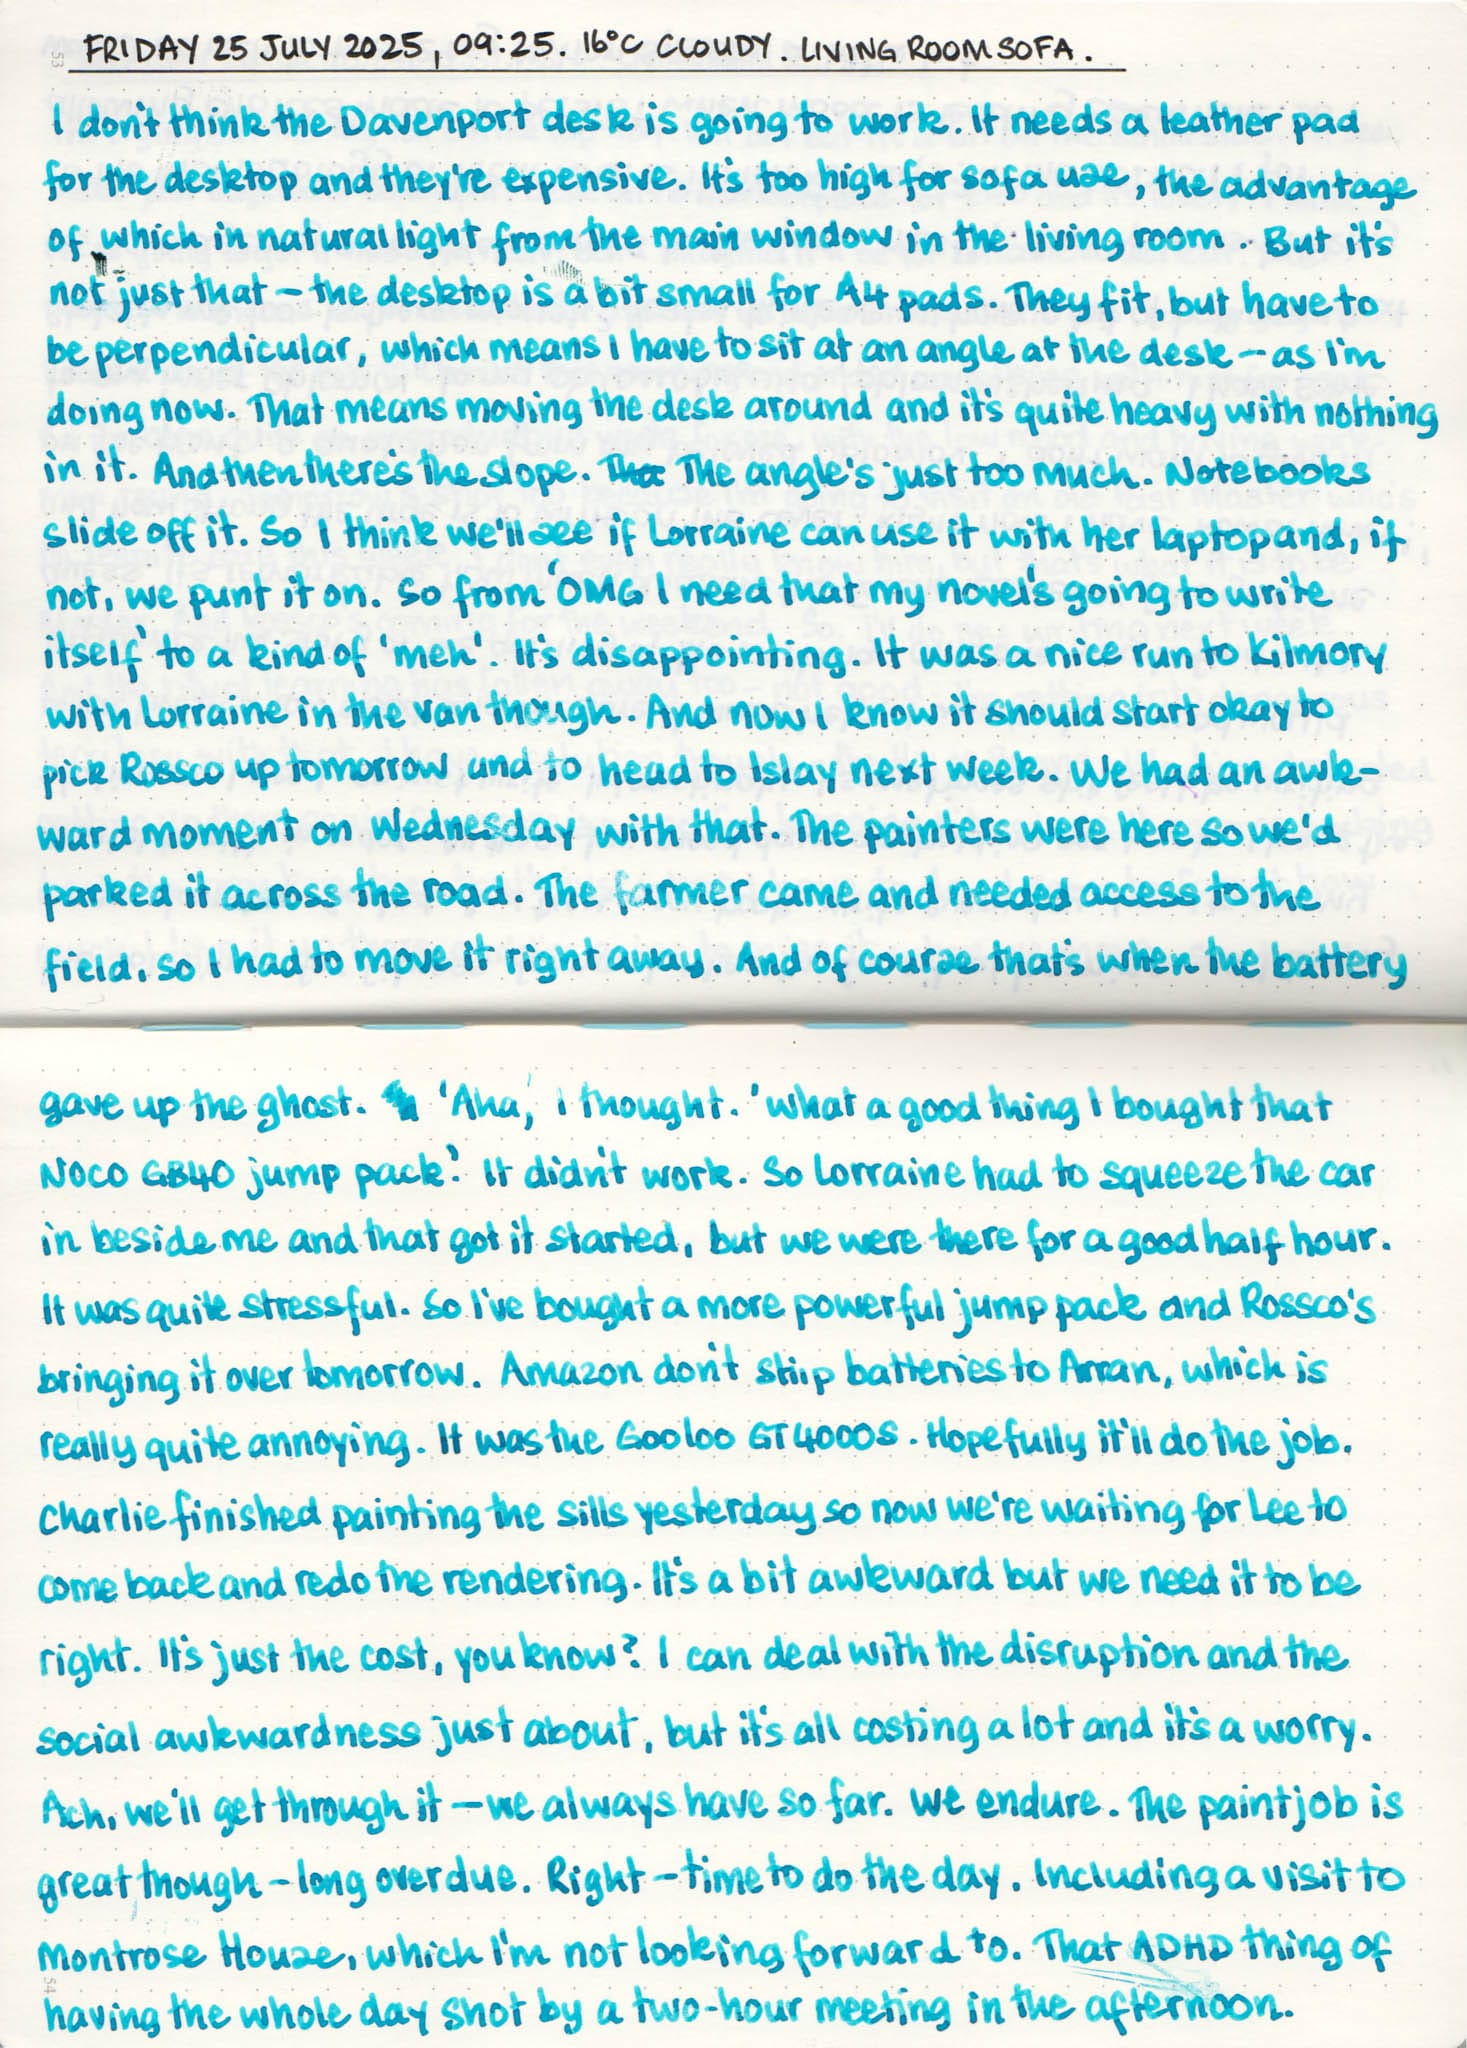 FRIDAY 25 JULY 2025, 09:25. 16°C CLOUDY. LIVING ROOM SOFA.
I don't think the Davenport desk is going to work. It needs a leather pad
for the desktop and they're expensive. It's too high for sofa use, the advantage
of which in natural light from the main window in the living room. But it's
not just that – the desktop is a bit small for A4 pads. They fit, but have to
be perpendicular, which means I have to sit at an angle at the desk – as I'm
doing now. That means moving the desk around and it's quite heavy with nothing
in it. And then there's the slope. The angle's just too much. Notebooks
slide off it. So I think we'll see if Lorraine can use it with her laptop and, if
not, we punt it on. So from 'OMG I need that my novel's going to write
itself' to a kind of 'meh'. It's disappointing. It was a nice run to Kilmory
with Lorraine in the van though. And now I know it should start okay to
pick Rossco up tomorrow and to head to Islay next week. We had an awk-
ward moment on Wednesday with that. The painters were here so we'd
parked it across the road. The farmer came and needed access to the
field, so I had to move it right away. And of course that's when the battery
gave up the ghost. 'Aha,' I thought. 'What a good thing I bought that
NOCO GB40 jump pack'. It didn't work. So Lorraine had to squeeze the car
in beside me and that got it started, but we were there for a good half hour.
It was quite stressful. So I've bought a more powerful jump pack and Rossco's
bringing it over tomorrow. Amazon don't ship batteries to Arran, which is
really quite annoying. It was the Gooloo GT4000S. Hopefully it'll do the job.
Charlie finished painting the sills yesterday so now we're waiting for Lee to
come back and redo the rendering. It's a bit awkward but we need it to be
right. It's just the cost, you know? I can deal with the disruption and the
social awkwardness just about, but it's all costing a lot and it's a worry.
Ach, we'll get through it – we always have so far. We endure. The paintjob is
great though – long overdue. Right – time to do the day. Including a visit to
Montrose House, which I'm not looking forward to. That ADHD thing of
54
having the whole day shot by a two-hour meeting in the afternoon.